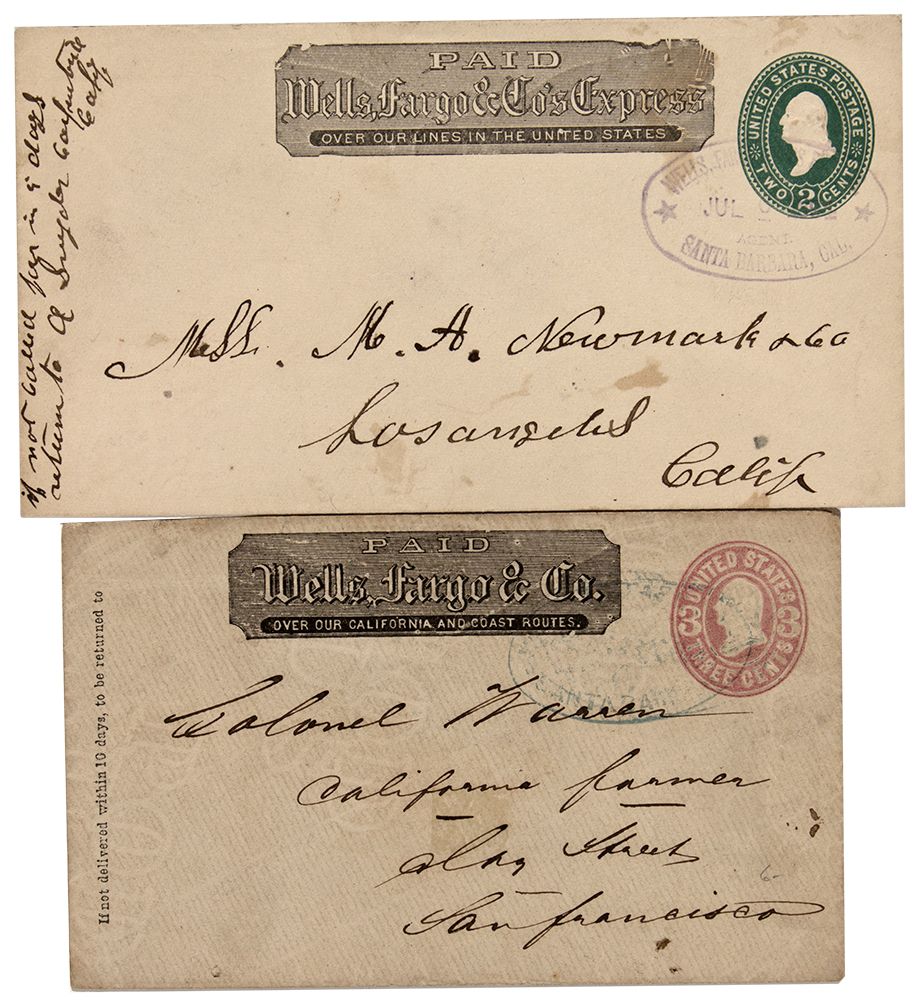 PAID
Wells, Fargo & Co's Express
OVER OUR LINES IN THE UNITED STATES
UNITED STATES POSTAGE
TWO 2 CENTS
WELLS, FA
JUL
AGENT.
SANTA BARBARA, CAL.
if not called for in 5 days
return to A Snyder
Calif
Mss. M. A. Newmark & Co
Los angeles
Calif
PAID
Wells, Fargo & Co.
OVER OUR CALIFORNIA AND COAST ROUTES.
UNITED STATES
3 3
THREE CENTS
SANTA BAR
If not delivered within 10 days, to be returned to
Colonel Warren
California farmer
Clay Street
San francisco